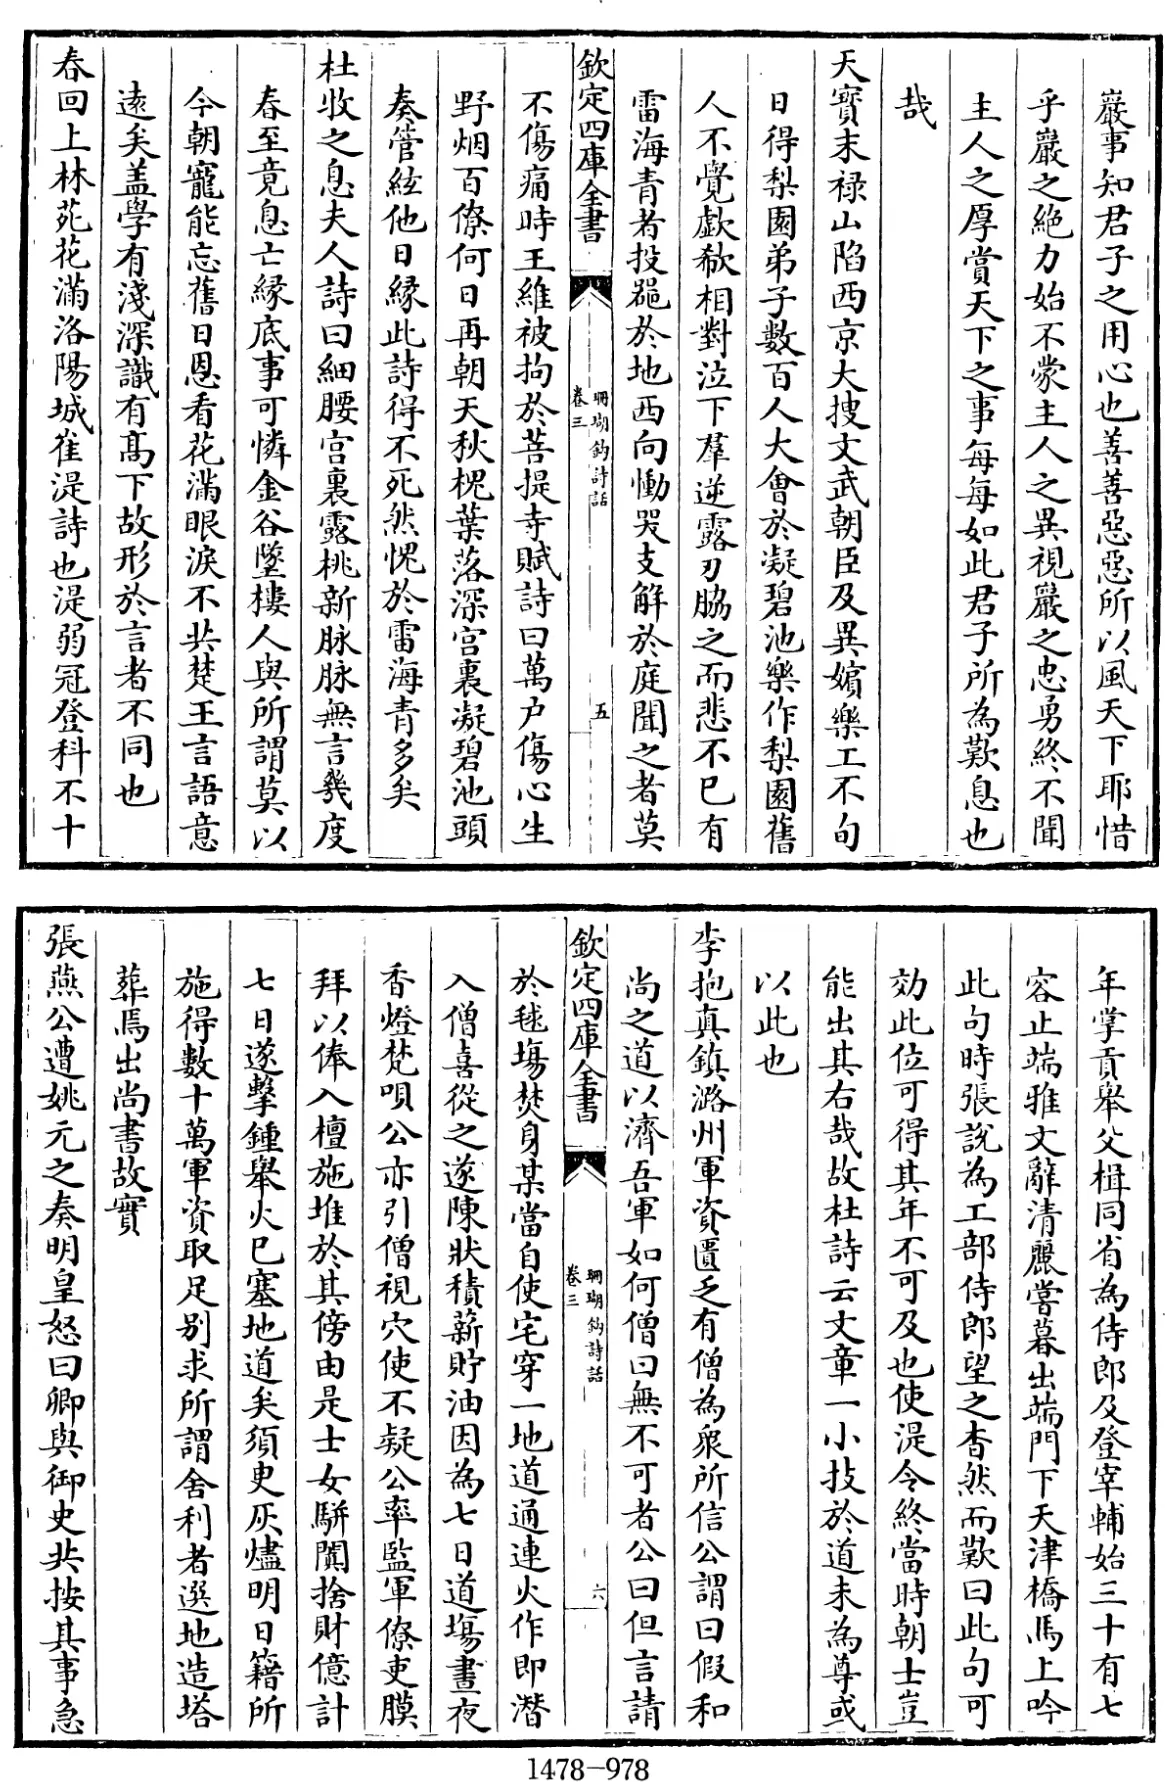 嚴事知君子之用心也善善惡惡所以風天下耶惜
乎嚴之絶力始不蒙主人之異視嚴之忠勇終不聞
主人之厚賞天下之事每每如此君子所為歎息也
哉
天寶末禄山陷西京大搜文武朝臣及異嬪樂工不旬
日得梨園弟子數百人大會於凝碧池樂作梨園舊
人不覺歔欷相對泣下羣逆露刃脇之而悲不已有
雷海青者投噐於地西向慟哭支解於庭聞之者莫
欽定四庫全書
珊瑚鈎詩話
卷三
五
不傷痛時王維被拘於菩提寺賦詩曰萬户傷心生
野烟百僚何日再朝天秋槐葉落深宫裏凝碧池頭
奏管絃他日緣此詩得不死然愧於雷海青多矣
杜牧之息夫人詩曰細腰宫裏露桃新脉脉無言幾度
春至竟息亡緣底事可憐金谷墜樓人與所謂莫以
今朝寵能忘舊日恩看花滿眼淚不共楚王言語意
遠矣盖學有淺深識有髙下故形於言者不同也
春回上林苑花滿洛陽城崔湜詩也湜弱冠登科不十
年掌貢舉父楫同省為侍郎及登宰輔始三十有七
容止端雅文辭清麗嘗暮出端門下天津橋馬上吟
此句時張説為工部侍郎望之杳然而歎曰此句可
効此位可得其年不可及也使湜令終當時朝士豈
能出其右哉故杜詩云文章一小技於道未為尊或
以此也
李抱真鎮潞州軍資匱乏有僧為衆所信公謂曰假和
尚之道以濟吾軍如何僧曰無不可者公曰但言請
欽定四庫全書
珊瑚鈎詩話
卷三
六
於毬塲焚身某當自使宅穿一地道通連火作即潛
入僧喜從之遂陳狀積薪貯油因為七日道塲晝夜
香燈梵唄公亦引僧視穴使不疑公率監軍僚吏膜
拜以俸入檀施堆於其傍由是士女駢闐捨財億計
七日遂擊鍾舉火巳塞地道矣須臾灰燼明日籍所
施得數十萬軍資取足别求所謂舍利者選地造塔
葬焉出尚書故實
張燕公遭姚元之奏明皇怒曰卿與御史共按其事急
1478-978